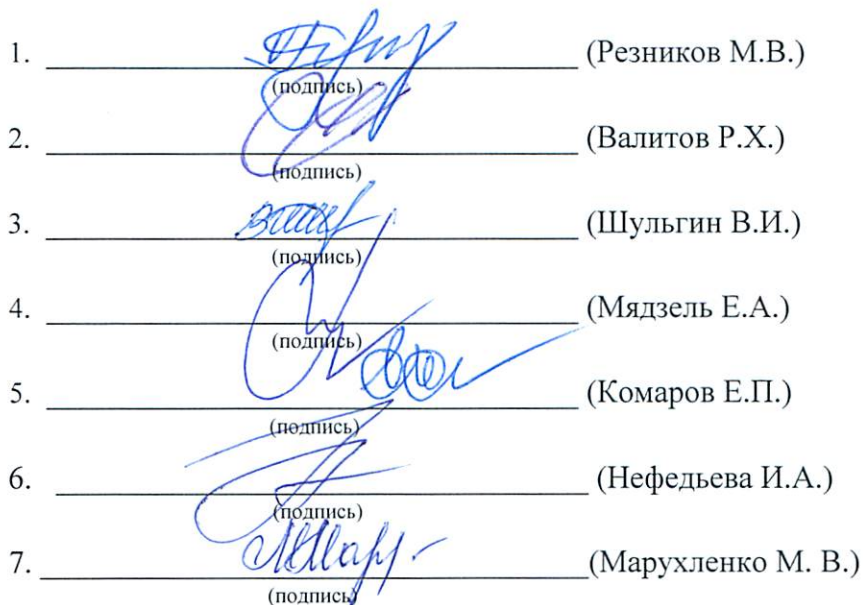 1. (Резников М.В.)
(подпись)
2. (Валитов Р.Х.)
(подпись)
3. (Шульгин В.И.)
(подпись)
4. (Мядзель Е.А.)
(подпись)
5. (Комаров Е.П.)
(подпись)
6. (Нефедьева И.А.)
(подпись)
7. (Марухленко М. В.)
(подпись)